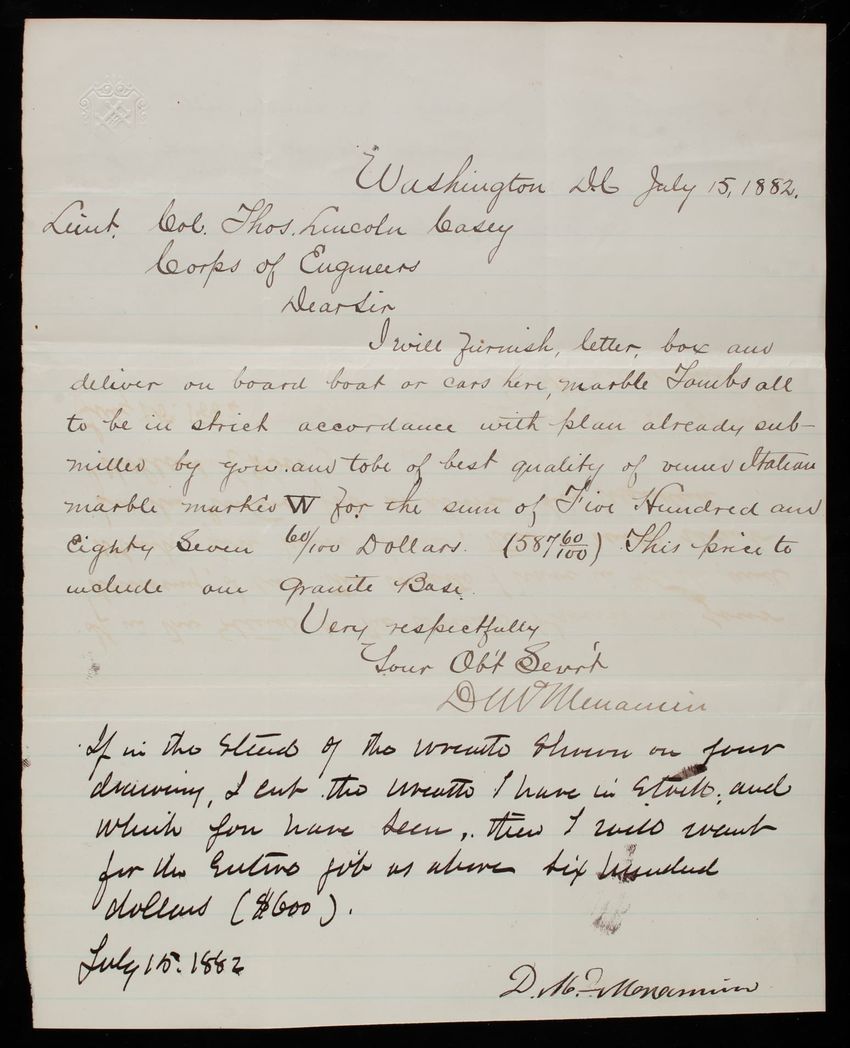 Washington DC July 15, 1882.
Lieut. Col. Thos. Lincoln Casey
Corps of Engineers
Dear Sir
I will furnish, letter, box and
deliver on board boat or cars here, marble Tombs all
to be in strict accordance with plan already sub-
mitted by you. and to be of best quality of veined Italian
marble marked W for the sum of Five Hundred and
Eighty Seven 60/100 Dollars. (587 60/100) This price to
include one Granite Base.
Very respectfully
Your Ob't Serv't
D McMenamin
If in the stead of the wreath shown on your
drawing, I cut the wreath I have in stock, and
which you have seen, then I will want
for the entire job as above six hundred
dollars ($600).
July 15. 1882
D. McMenamin